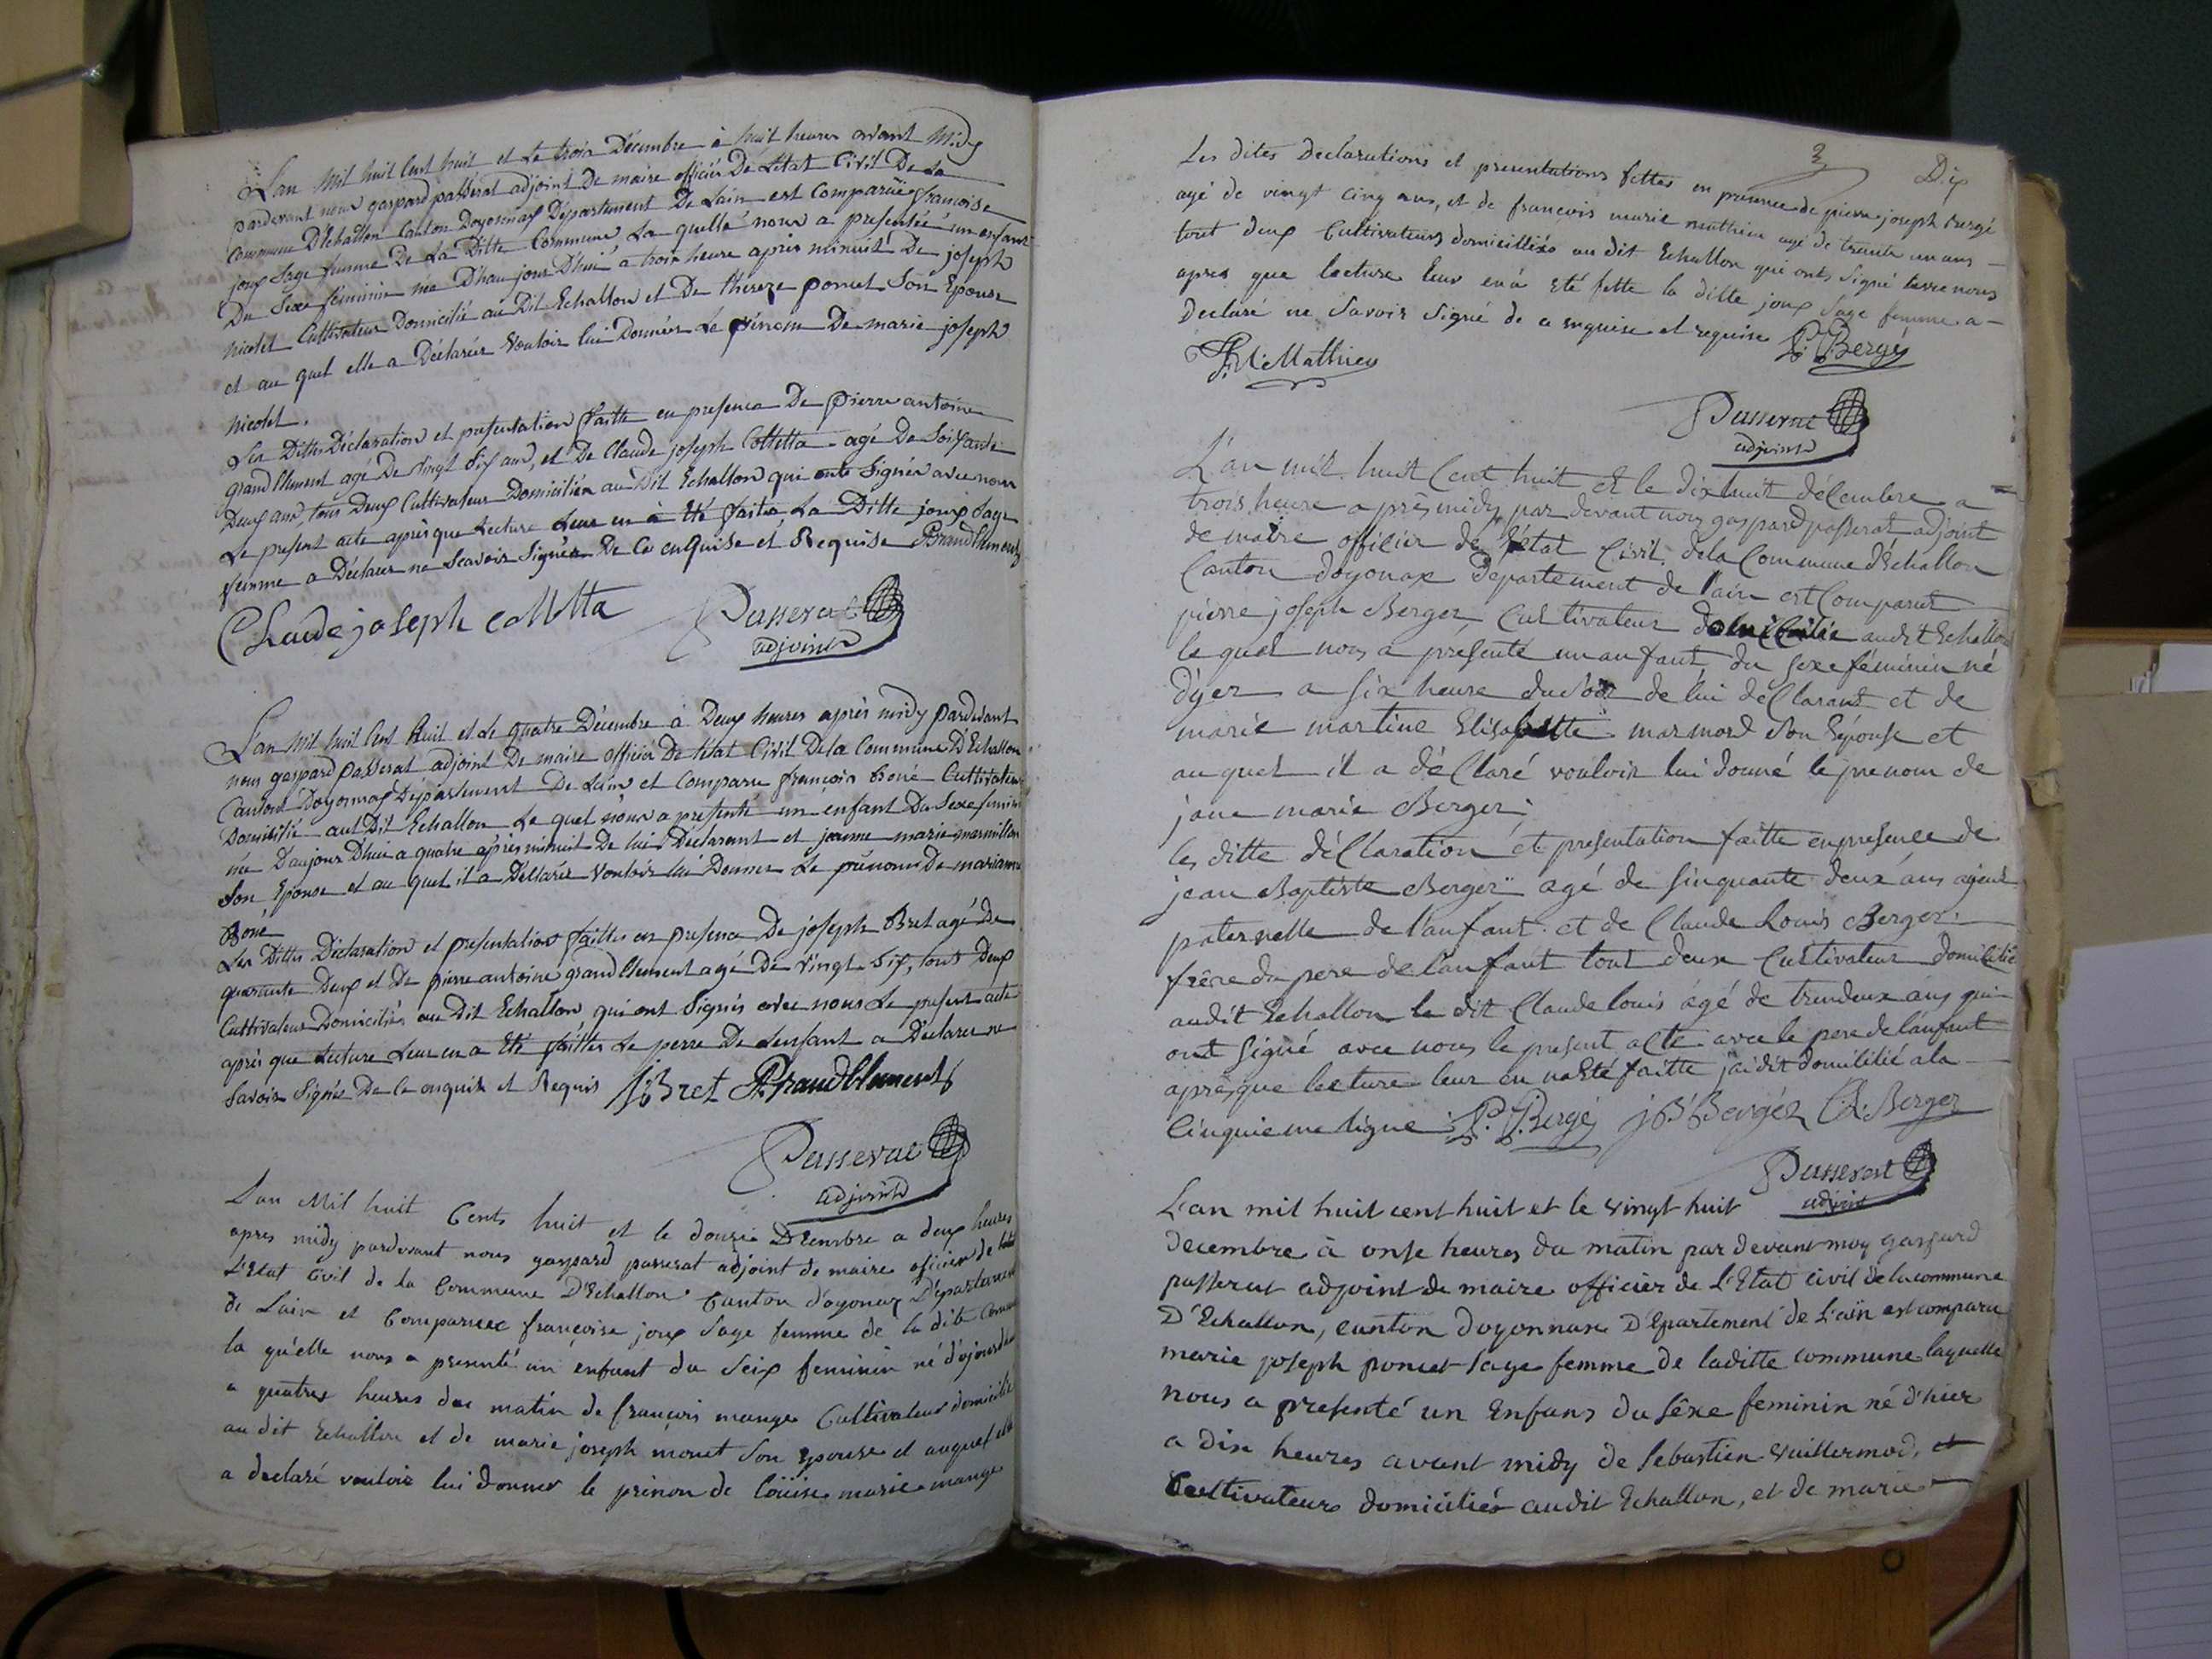 L'an Mil huit Cent huit et Le trois Décembre à huit heures avant Midy
pardevant nous gaspard passerat adjoint De maire officier De L'état Civil De La
Commune D'Echallon Canton Doyonnax Département De Lain est Comparüe françoise
joux Sage femme De La Ditte Commune, La quelle nous a presentée un enfant
Du Sexe féminin née D'hau jour D'hui a trois heure apres minuit De joseph
Nicolet Cultivateur Domicilié au Dit Echallon et De thereze poncet Son Epouse
et au quel elle a Déclarée Vouloir lui Donner Le prénom De marie joseph
Nicolet.
Les Dittes Déclaration et presentation faitte en presence De pierre antoine
grand Clement agé De vingt Six ans, et De Claude joseph Colletta agé De Soixante
Deux ans, tous Deux Cultivateurs Domiciliés au Dit Echallon qui ont Signés avec nous
Le present acte après que Lecture Leur en a Eté faitte La Ditte joux Sage
femme a Déclaré ne Scavoir Signée De Ce enquise et Requise PGrandClement
Claude joseph colletta Passerat
adjoint
L'an Mil huit Cent huit et Le quatre Décembre à Deux heures après midy pardevant
nous gaspard passerat adjoint De maire officier De létat Civil De la Commune D'Echallon
Canton Doyonnax Département De Lain et Comparu françois Boné Cultivateur
Domicilié audit Echallon Le quel nous a presenté un enfant Du Sexe feminin
née D'aujour D'hui a quatre après minuit De lui Déclarant et jeanne marie marmillon
Son Epouse et au quel il a Déclarée Vouloir lui Donner Le prénom De marianne
Boné
Les Dittes Déclaration et presentation faittes en presence De joseph Bret agé De
quarante Deux et De pierre antoine grand Clement agé De vingt Six, tous Deux
Cultivateur Domiciliés au Dit Echallon qui ont Signés avec nous Le present acte
après que Lecture Leur en a Eté faittes Le perre De Lenfant a Déclarer ne
Savoir Signée De Ce enquis et Requis J Bret PGrandClement
Passerat
adjoint
L'an Mil huit Cents huit et le douzie Décembre a deux heures
apres midy pardevant nous gaspard passerat adjoint de maire oficier de
L'Etat Civil de la Commune D'Echallon Canton d'oyonax Département
de Lain et Comparuee françoise joux Sage femme de la dite Commune
la quelle nous a presenté un enfant du Seix feminin né d'ojourdui
a quatre heures du matin de françois mange Cultivateur domicilié
au dit Echallon et de marie joseph monet Son Epouse et auquel elle
a declaré vouloir lui donner le prénon de Louise marie mange
Dix
Les dites Declarations et presentations fettes en presence de pierre joseph Bergé
agé de vingt Cinq ans, et de francois marie mathieu agé de trente un ans
tout deux Cultivateurs domicilliés au dit Echallon qui onts Signé avec nous
apres que lecture leur en a Eté fette la ditte joux Sage femme a
Declaré ne Savoir Signé de ce enquise et requise P.J.Bergé
F.M.Mathieu
Passerat
adjoint
L'an mil huit Cent huit et le dixhuit déCembre a
trois heure aprés midy par devant nous gaspard passerat adjoint
de maire officier de l'état Civil de la Commune d'Echallon
Canton doyonax département de l'ain est Comparut
pierre joseph Berger Cultivateur domicilié audit Echallon
le quel nous a présenté un anfant du sexe féminin né
d'yer a six heure du soir de lui déClarant et de
marie martine Elisabette marmod Son Epouse et
au quel il a déClaré vouloir lui donné le prenom de
jane marie Berger.
les ditte déClaration et presentation faitte en presence de
jean Baptiste Berger agé de sinquante deux ans ayeul
paternelle de l'anfant et de Claude Louis Berger
frére du pere de l'anfant tout deux Cultivateur domicilié
audit Echallon le dit Claude louis agé de trendeux ans qui
ont signé avec nous le present acte avec le pere de l'anfant
aprés que lecture leur en na Eté faitte jai dit domicilié a la
Cinquieme ligne P.J.Bergé J.B Bergér C.L.Berger
Passerat
adjoint
L'an mil huit cent huit et le vingt huit
decembre à onse heures du matin par devant moy gaspard
passerat adjoint de maire officier de L'Etat civil de la commune
D'Echallon, canton doyonnax Département de L'ain est comparu
marie joseph poncet sage femme de laditte commune laquelle
nous a presenté un Enfans du sêxe feminin né d'hier
a dix heures avant midy de sebastien vuillermod, et
Cultivateurs domiciliés audit Echallon, et de marie